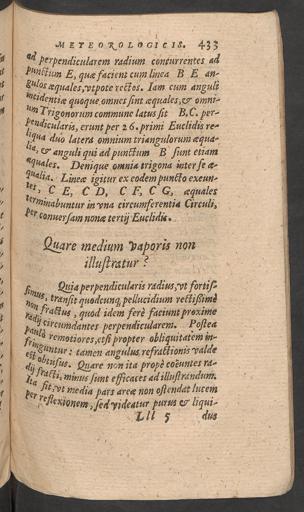 METEOROLOGICIS. 433
ad perpendicularem radium concurrentes ad
punctum E, quæ facient cum linea B E an-
gulos æquales, vtpote rectos. Iam cum anguli
incidentiæ quoque omnes sint æquales, & omni-
um Trigonorum commune latus sit B,C. per-
pendicularis, erunt per 26. primi Euclidis re-
liqua duo latera omnium triangulorum æqua-
lia, & anguli qui ad punctum B sunt etiam
æquales. Denique omnia trigona inter se æ-
qualia. Lineæ igitur ex codem puncto exeun-
tes, C E, C D, C F, C G, æquales
terminabuntur in vna circumferentia Circuli,
per conuersam nonæ tertij Euclidis.
Quare medium vaporis non
illustratur?
Quia perpendicularis radius, vt fortis-
simus, transit quodcunq, pellucidum rectissimè
non fractus, quod idem ferè faciunt proxime
radij circumdantes perpendicularem. Postea
paulò remotiores, etsi propter obliquitatem in-
fringuntur: tamen angulus refractionis valde
est obtusus. Quare non ita propè coëuntes ra-
dij fracti, minus sunt efficaces ad illustrandum.
Ita fit, vt media pars areæ non ostendat lucem
per reflexionem, sed videatur purus & liqui-
Lll 5 dus